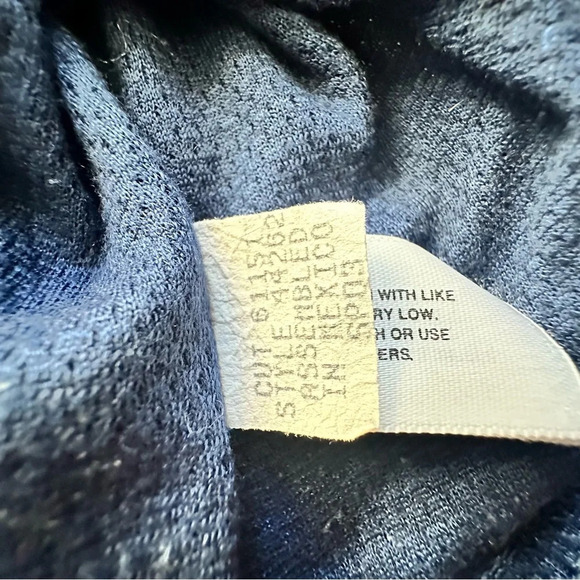 CUT 6115
STYLE 44262
ASSEMBLED
IN MEXICO
SP03
WITH LIKE
RY LOW.
H OR USE
ERS.